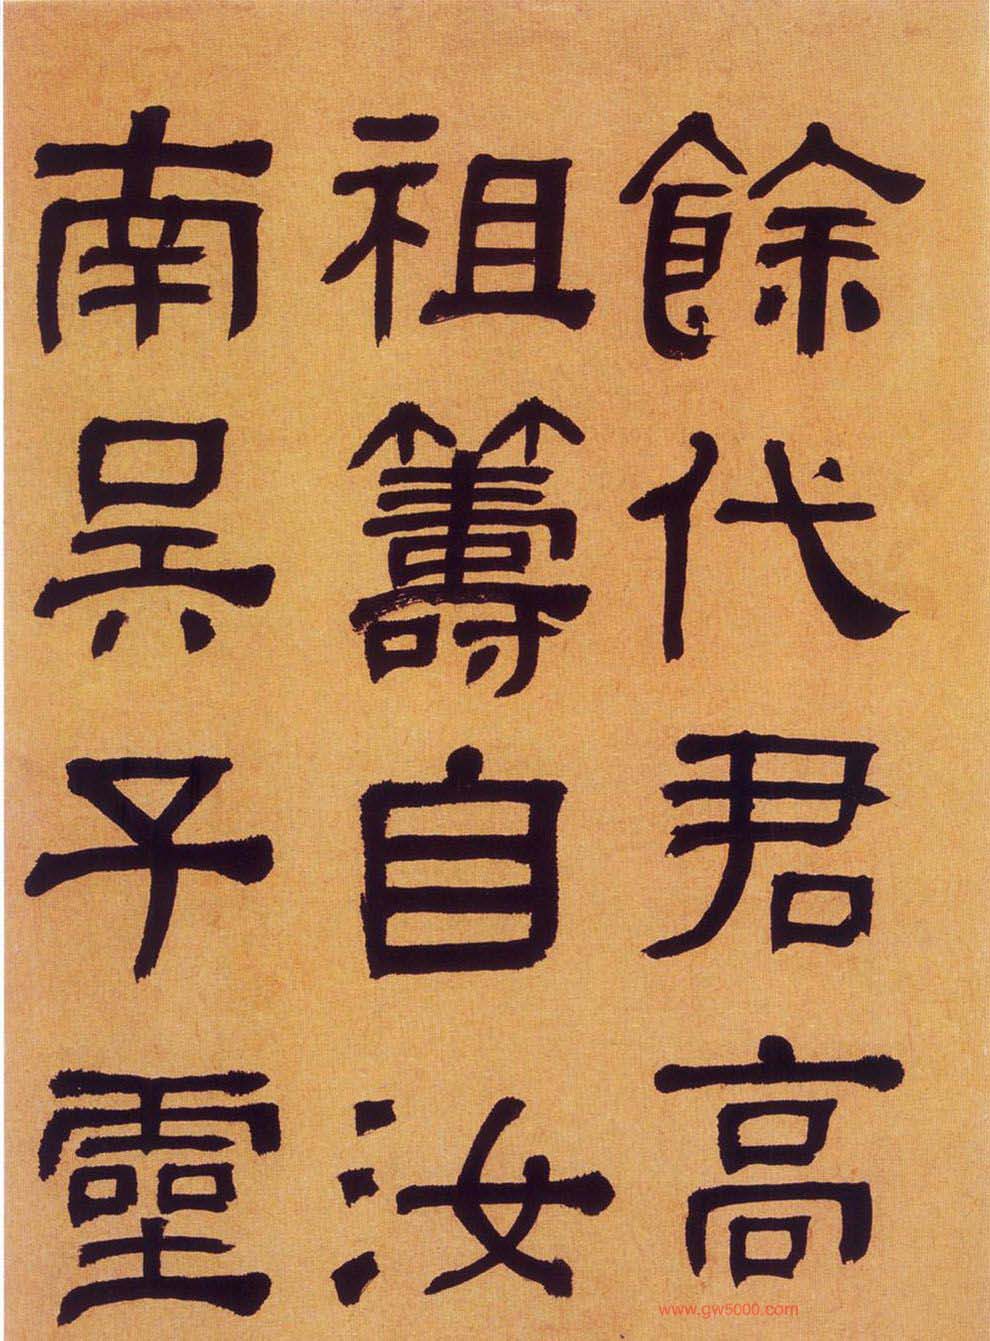 餘代君高
祖籌自汝
南吳子靈
www.gw5000.com